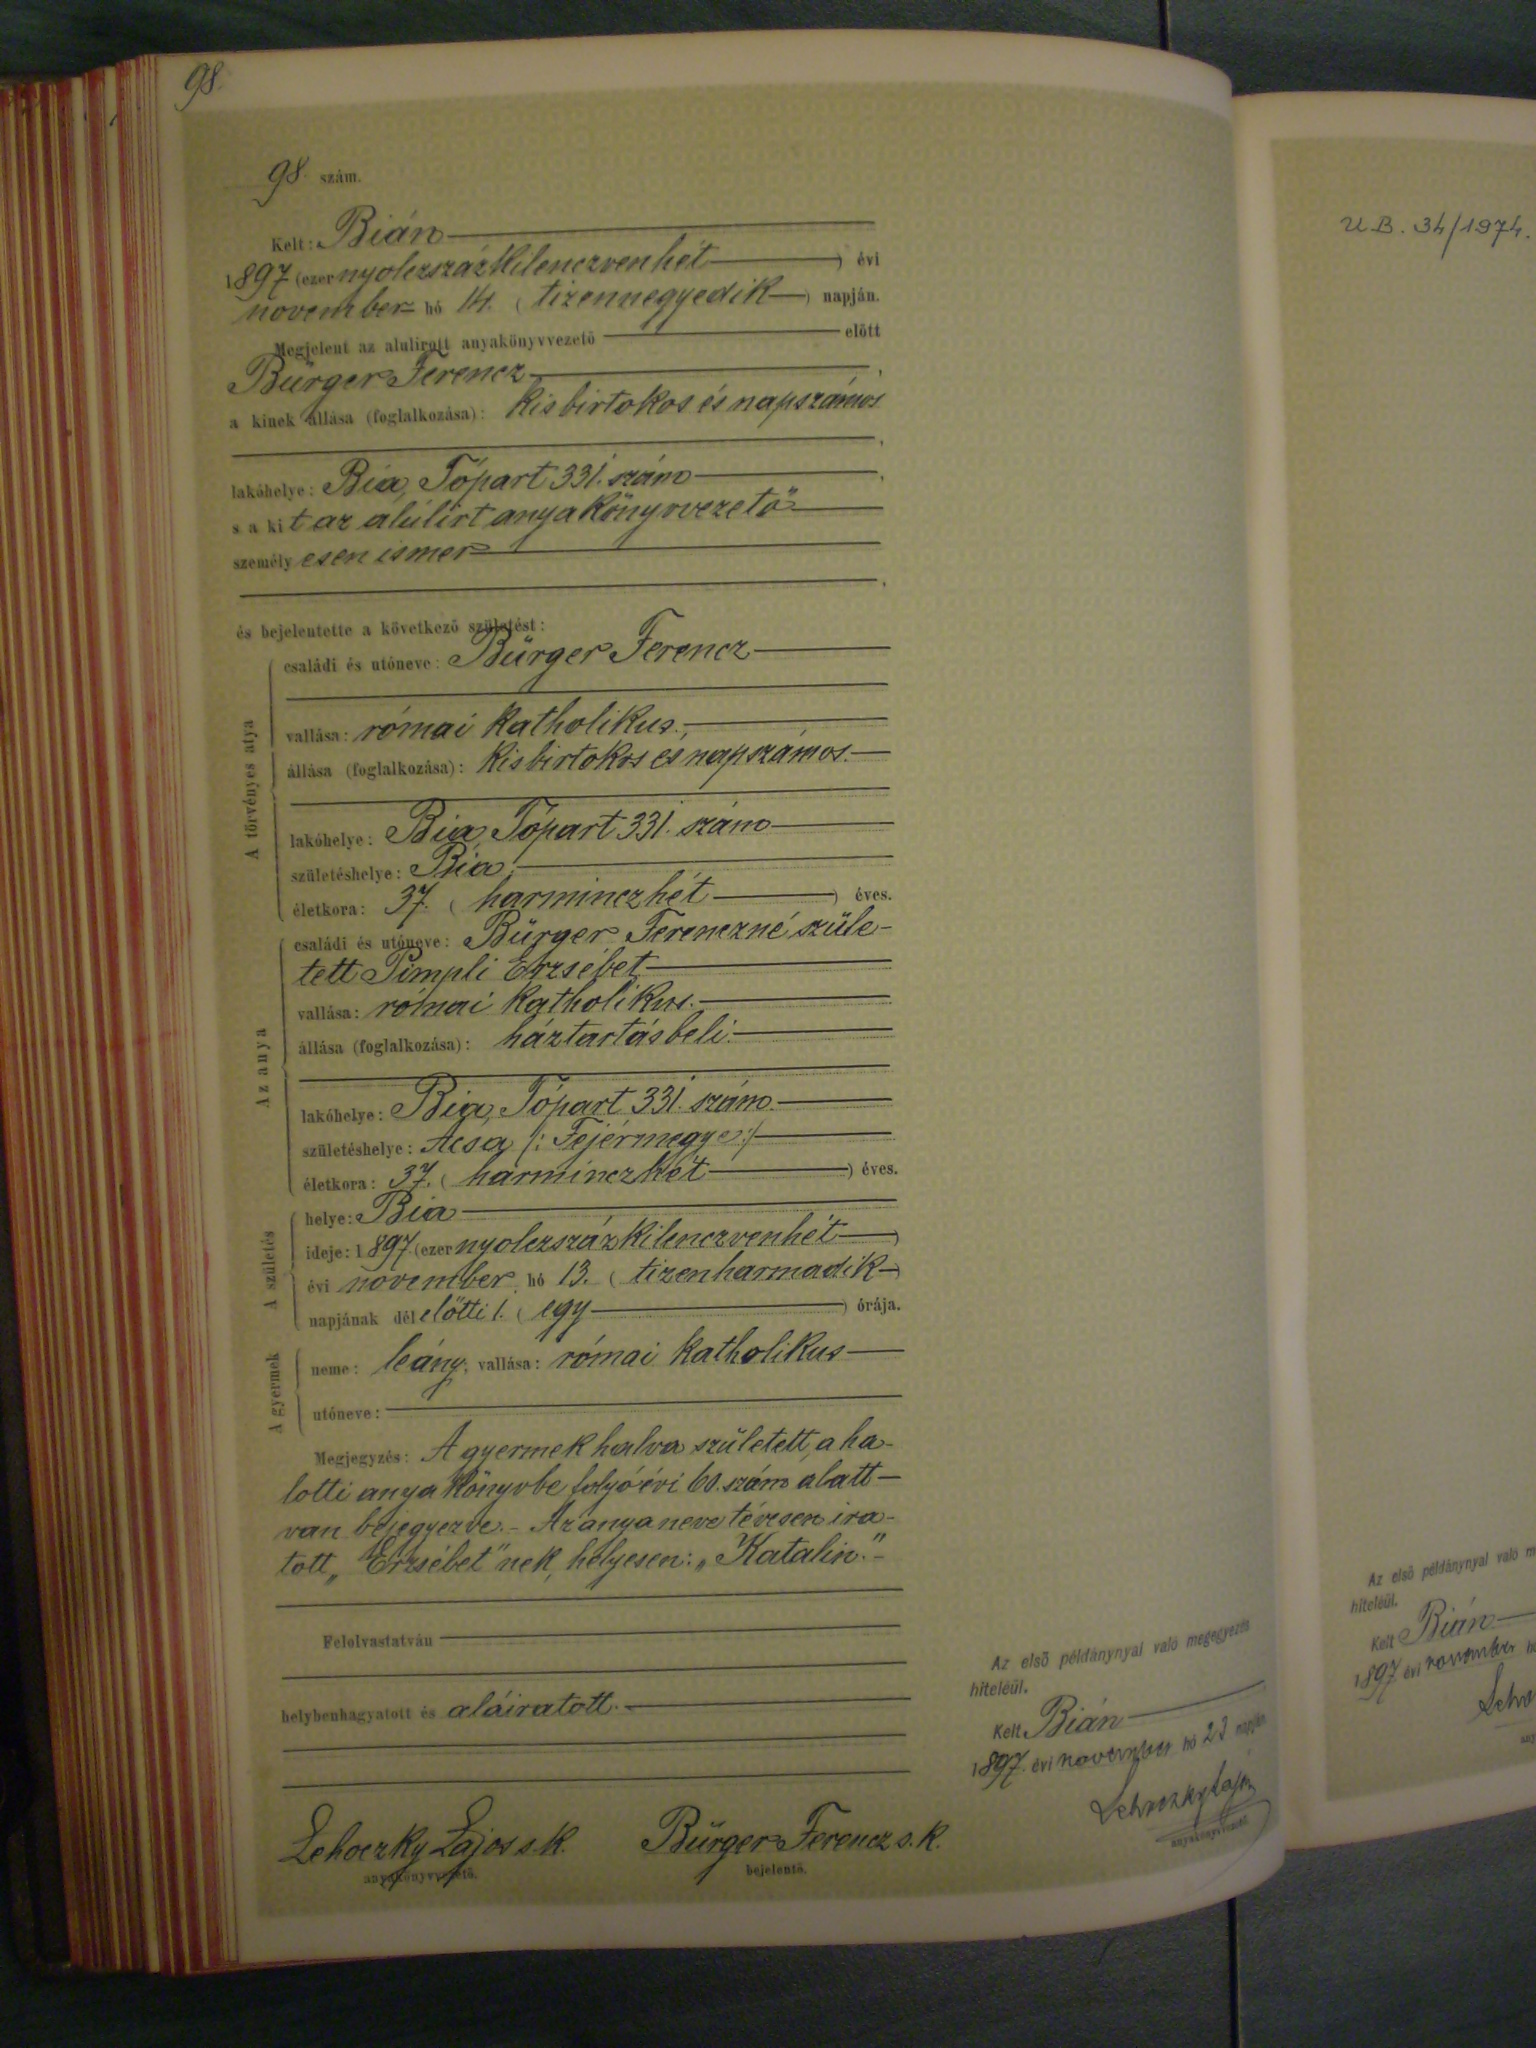 98.
98. szám.
Kelt: Bián
1897 (ezer nyolczszázkilenczvenhét) évi
november hó 14. (tizennegyedik) napján.
Megjelent az alulirott anyakönyvvezető előtt
Bürger Ferencz,
a kinek állása (foglalkozása): kisbirtokos és napszámos
,
lakóhelye: Bia, Tópart 331. szám,
s a kit az alúlirt anyakönyvvezető
személyesen ismer
,
és bejelentette a következő születést:
A törvényes atya
családi és utóneve: Bürger Ferencz
vallása: római katholikus.
állása (foglalkozása): kisbirtokos és napszámos.
lakóhelye: Bia, Tópart 331. szám
születéshelye: Bia,
életkora: 37. (harminczhét) éves.
Az anya
családi és utóneve: Bürger Ferenczné szüle-
tett Pimpli Erzsébet
vallása: római katholikus.
állása (foglalkozása): háztartásbeli.
lakóhelye: Bia, Tópart 331. szám.
születéshelye: Acsa /: Fejérmegye :/
életkora: 37. (harminczhét) éves.
A születés
helye: Bia
ideje: 1897 (ezer nyolczszázkilenczvenhét)
évi november hó 13. (tizenharmadik)
napjának délelőtti 1. (egy) órája.
A gyermek
neme: leány; vallása: római katholikus
utóneve:
Megjegyzés: A gyermek halva született, a ha-
lotti anyakönyvbe folyó évi 60. szám alatt
van bejegyezve. - Az anya neve tévesen ira-
tott „Erzsébet" nek, helyesen: „Katalin."
Felolvastatván
helybenhagyatott és aláiratott.
Lehoczky Lajos s. k.
anyakönyvvezető.
Bürger Ferencz s. k.
bejelentő.
Az első példánynyal való megegyezés
hiteléül.
Kelt Bián
1897. évi november hó 23 napján
Lehoczky Lajos
anyakönyvvezető.
U. B. 34/1974.
Az első példánynyal való m
hiteléül.
Kelt Bián
1897 évi november h
Leho
any